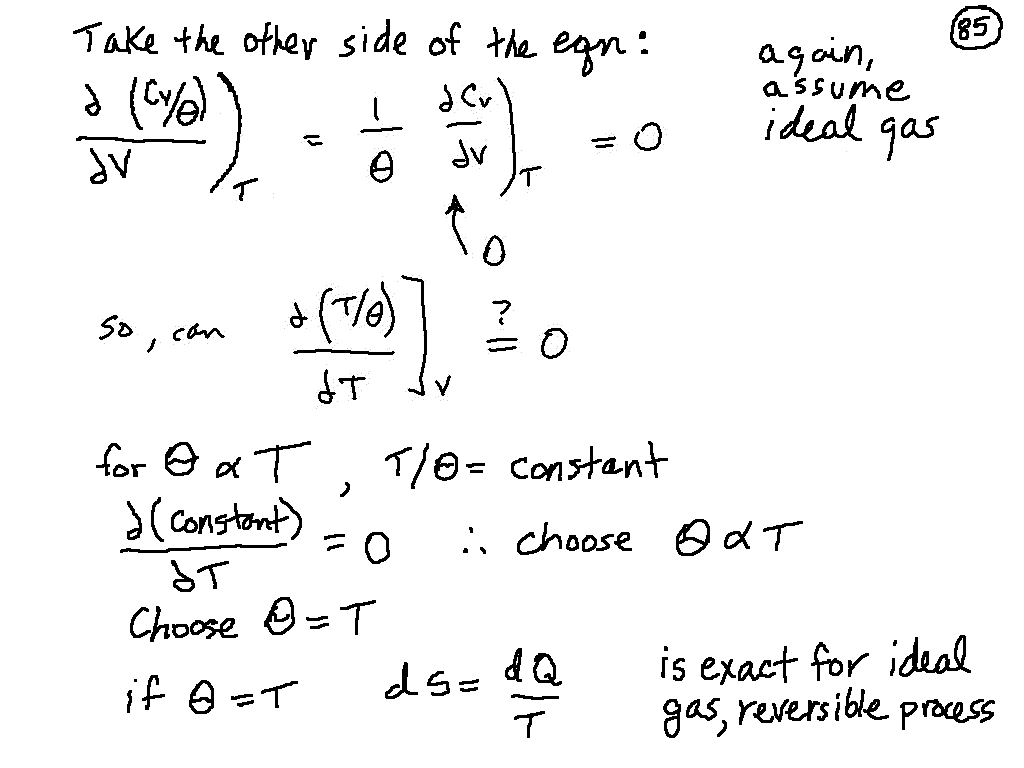 Take the other side of the eqn:
85
again,
assume
ideal gas
∂(Cv/θ)/∂V)T = 1/θ ∂Cv/∂V)T = 0
↑ 0
so, can ∂(T/θ)/∂T]V ?= 0
for θ ∝ T, T/θ = constant
∂(constant)/∂T = 0 ∴ choose θ ∝ T
Choose θ = T
if θ = T ds = dQ/T
is exact for ideal
gas, reversible process